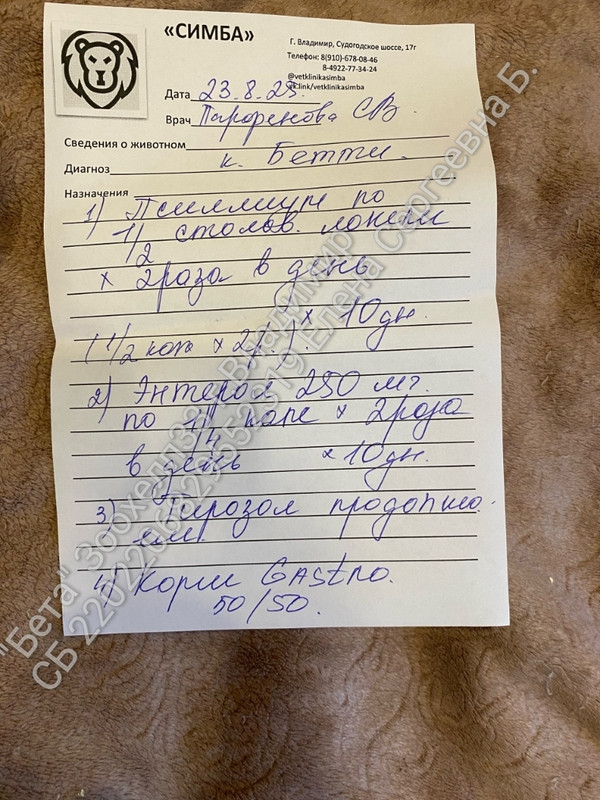 «СИМБА»
Г. Владимир, Судогодское шоссе, 17г
Телефон: 8(910)-678-08-46
8-4922-77-34-24
@vetklinikasimba
vk.link/vetklinikasimba
Дата 23.8.23.
Врач Парфенова СВ.
Сведения о животном
к. Бетти.
Диагноз
Назначения
1) Псиллиум по
1/2 столов. ложки
х 2 раза в день
х 10 дн.
2) Энтерол 250 мг.
по 1/4 капс х 2 раза
в день х 10 дн.
3) Тирозол
4) Корм Gastro.
50/50.
"Бета" Зоохелп33 г. Владимир
Елена Сергеевна Б.